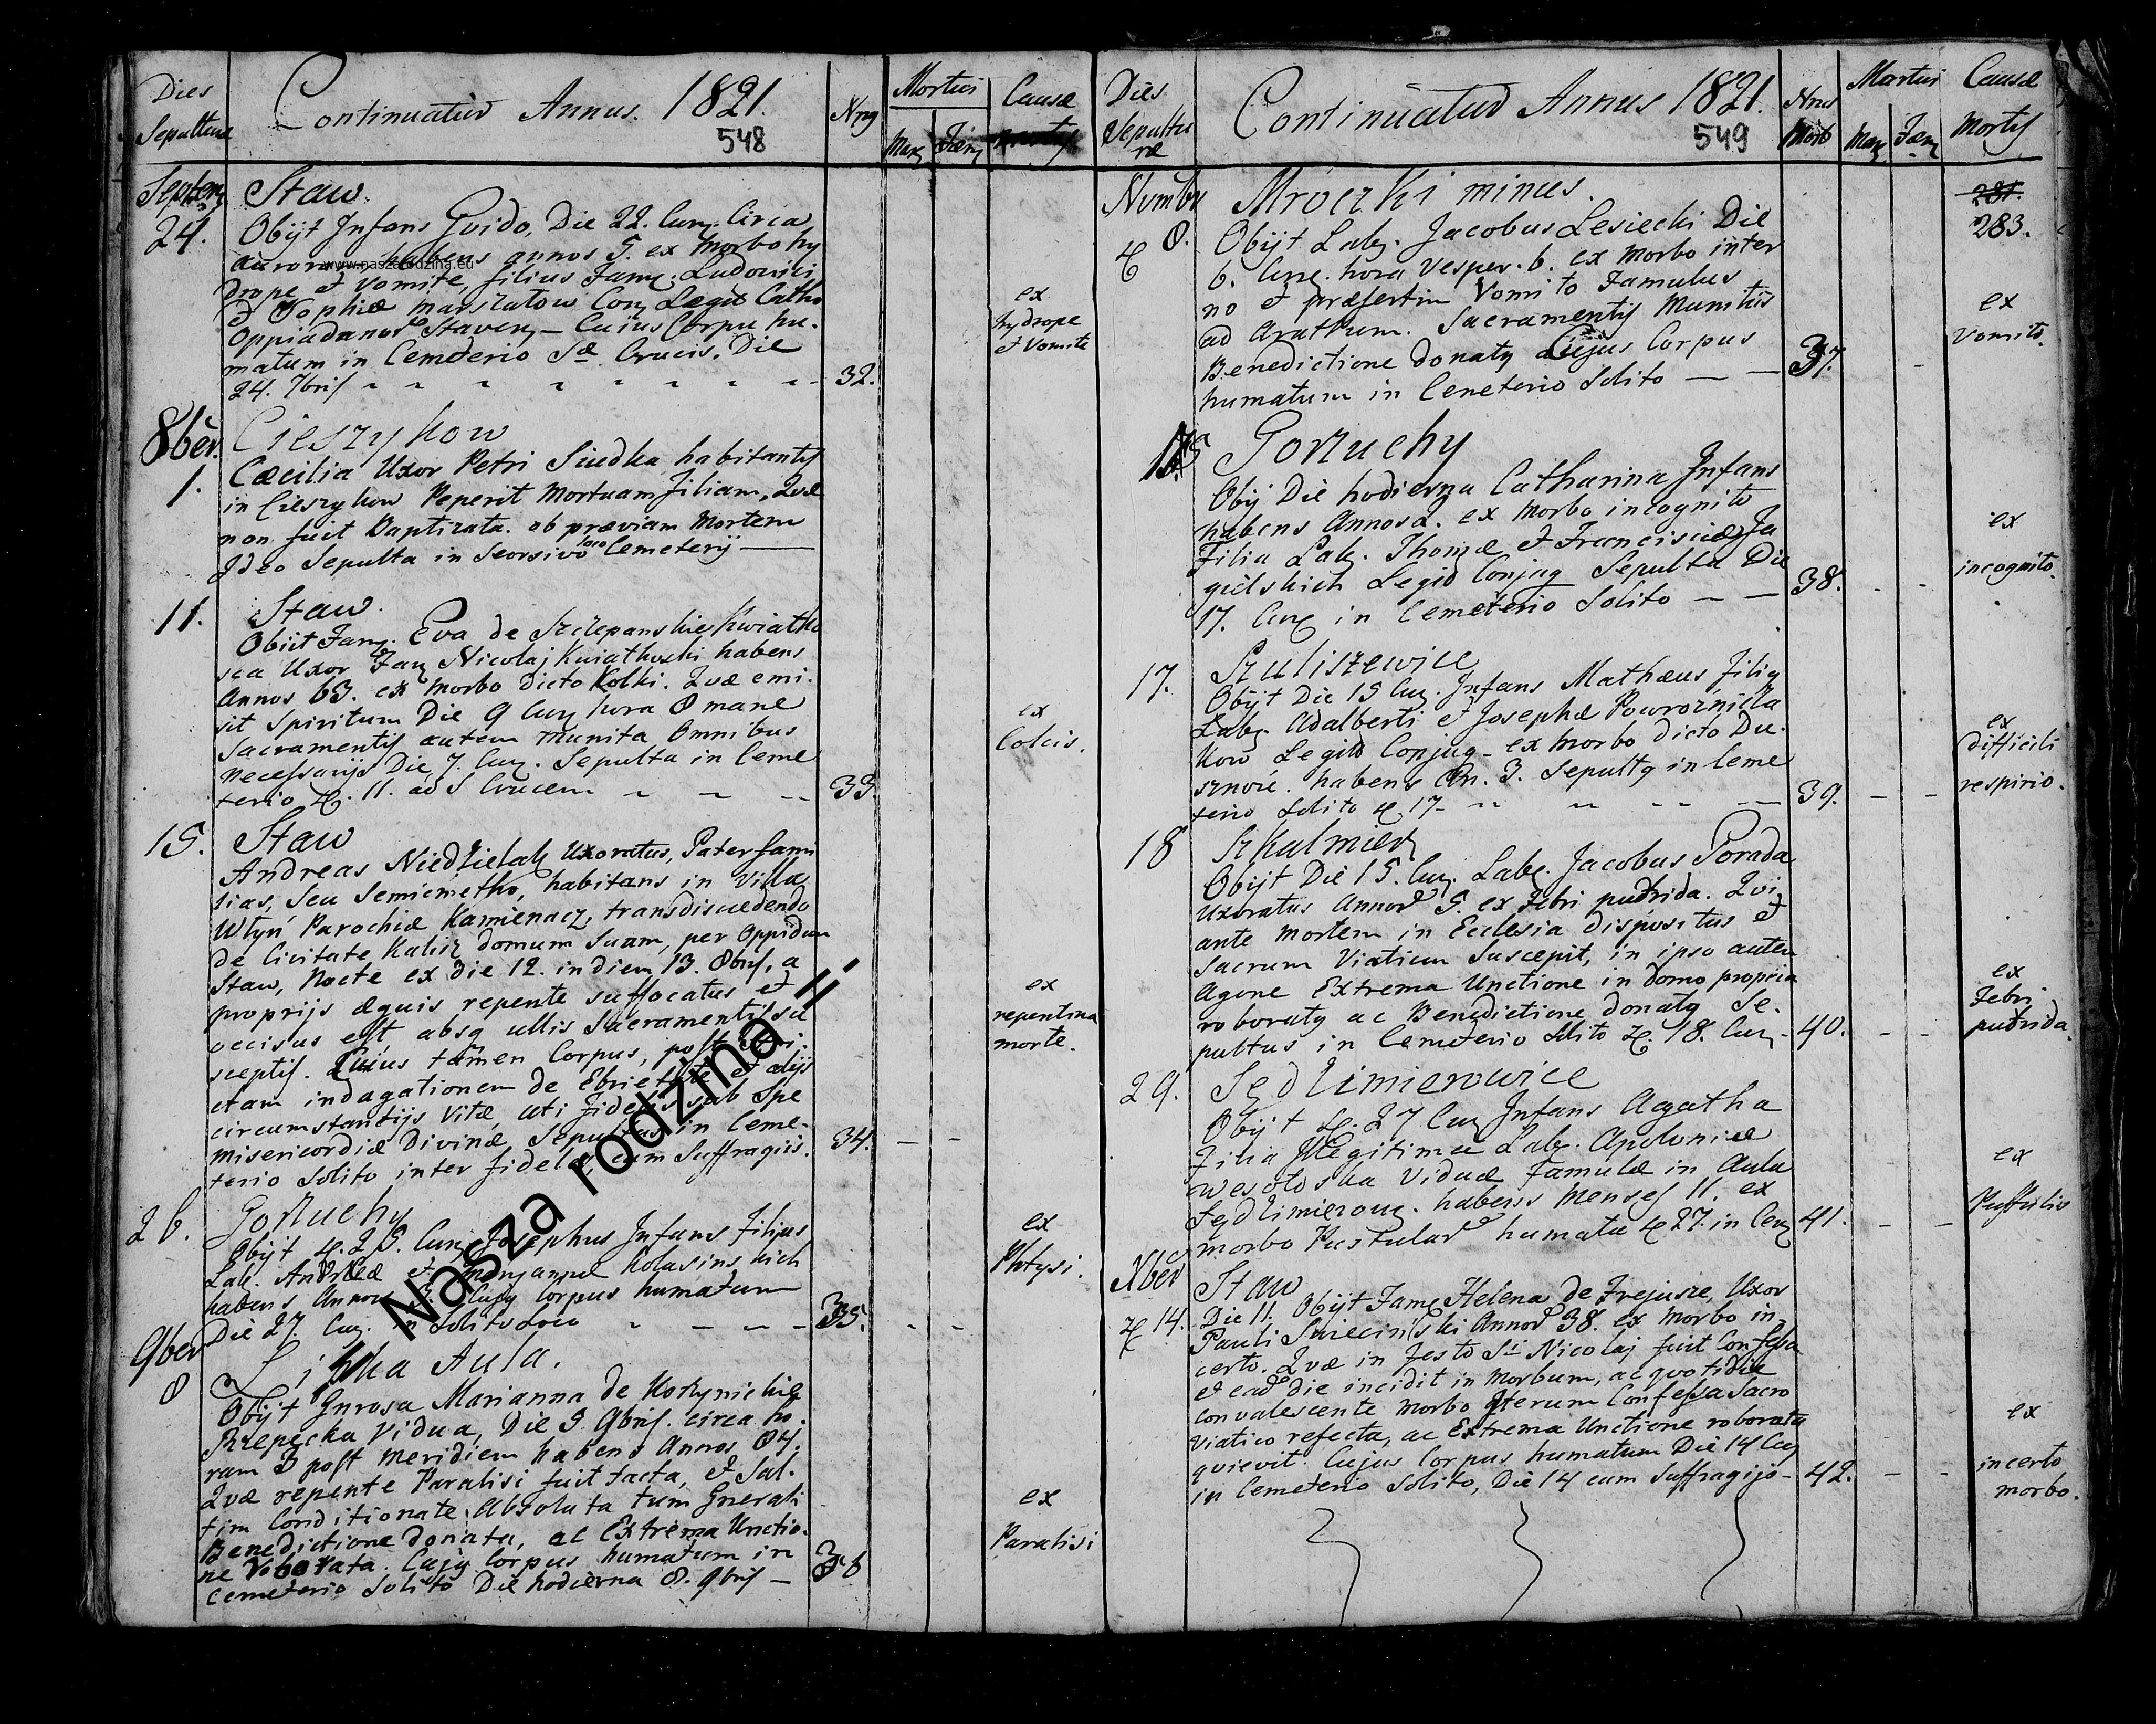 Dies
Sepulturæ
Continuatur Annus. 1821.
548
Nrus
Mortui
Mas Fæm
Causæ
Septem
24.
Staw.
Obijt Infans Guido, Die 22. Cur, Circa
auroram habens annos 5. ex Morbo hy
drope et Vomite, filius Fam. Ludovici
et Sophiæ Marszałow Conj Legit Catho
Oppidanor Staven, — Cuius Corpu hu-
matum in Cemeterio Sæ Crucis. Die
24. 7bris
32.
ex
hydrope
et Vomite
www.naszarodzina.eu
8ber.
1.
Cieszykow
Cæcilia Uxor Petri Siudka habitantis
in Cieszykow Peperit Mortuam filiam, Quæ
non fuit Baptizata. ob præviam Mortem
Ideo Sepulta in Seorsivo loco Cemeterij
11.
Staw.
Obiit Fam. Eva de Szczepanskie Kwiatko
sca Uxor Fam Nicolaj Kwiatkoski habens
Annos 63. ex Morbo dicto Kolki. Quæ emi-
sit Spiritum Die 9 Cur hora 8 mane
Sacramentis autem munita Omnibus
necessarijs Die 7. Cur. Sepulta in Ceme
terio 11. ad S Crucem
33.
ex
Colcis.
15.
Staw
Andreas Niedzielak Uxoratus, Pater fami
lias, Seu Semicmetho, habitans in Villa
Włyń Parochiæ Kamienacz, transdiscedendo
de Civitate Kalisz domum Suam, per Oppidum
Staw, Nocte ex die 12. in diem 13. 8bris, a
proprijs æquis repente suffocatus et
occisus est, absq ullis Sacramentis su
sceptis. Cuius tamen Corpus, post
ctam indagationem de Ebrietate et alijs
circumstantijs Vitæ, uti fidelis sub Spe
misericordiæ Divinæ, Sepultus in Ceme-
terio Solito inter fideles, cum Suffragiis.
34.
ex
repentina
morte.
26.
Gorzuchy
Obijt 25. Cur, Josephus Infans Filius
Lab. Andreæ et Marjannæ Kolasinskich
habens Annos 3. Cujus Corpus humatum
Die 27. Cur. in Solito Loco
35.
ex
Phtysi.
9ber
8
Lipka Aula.
Obijt Gnrosa Marianna de Kotynickie
Rzepecka Vidua, Die 5 9bris. circa ho-
ram 3 post Meridiem habens Annos 84.
Quæ repente Paralisi fuit tacta, et Sal-
tim Conditionate Absoluta tum Gnerali
Benedictione donata, ac Extrema Unctio-
ne roborata. Cujus Corpus humatum in
Cemeterio Solito Die hodierna 8. 9bris —
36
ex
Paralisi
Nasza rodzina II
Dies
Sepultu
ræ
Continuatur Annus 1821.
549
Nrus
Mort
Mortui
Mas Fæm
Causæ
Mortis
Nvmbr
8.
Mroczki minus.
Obijt Lab. Jacobus Lesiecki Die
6. Cur. hora Vesper. 6. ex Morbo inter
no et præsertim Vomito Famulus
ad Aratrum. Sacramentis Munitus
Benedictione donatus Cujus Corpus
humatum in Cemeterio Solito
37.
281.
283.
ex
Vomito.
Gorzuchy
Obij Die hodierna Catharina Infans
habens Annos 2. ex Morbo incognito
Filia Lab. Thomæ et Franciscæ Ja
gielskich Legit Conjug Sepulta Die
17. Cur in Cemeterio Solito
38.
ex
incognito.
17.
Szuliszewice
Obijt Die 15 Cur. Infans Mathæus filius
Lab. Adalberti et Josephæ Powroźnika
Kow Legit Conjug — ex Morbo dicto Du-
sznoić. habens An. 3. Sepultus in Ceme
terio Solito 17
39.
ex
difficili
respirio.
18
Szkulmierz
Obijt Die 15. Cur. Lab. Jacobus Porada
Uxoratus Annor 5. ex Febri pudrida. Qui
ante Mortem in Ecclesia dispositus et
Sacrum Viaticum Suscepit, in ipso autem
Agone Extrema Unctione in domo propria
roboratus ac Benedictione donatus Se-
pultus in Cemeterio Solito 18. Cur
40.
ex
Febri
pudrida.
29.
Sędzimierowice
Obijt 27 Cur Infans Agatha
Filia Illegitima Lab. Apoloniæ
Wesołoska Viduæ Famulæ in Aula
Sędzimierow. habens Menses 11. ex
morbo Pustular humata 27. in Cem
41.
ex
Pustulis
Xber
14.
Staw
Die 11. Obijt Fam. Helena de Frejusze, Uxor
Pauli Swiecinski Annor 38. ex Morbo in-
certo. Quæ in Festo Si Nicolaj fuit Confessa
et ead die incidit in Morbum, ac quotidie
convalescente Morbo Iterum Confessa Sacro
Viatico refecta, ac Extrema Unctione roborata
quievit. Cujus Corpus humatum Die 14 Cur
in Cemeterio Solito, Die 14 cum Suffragijs
42.
ex
incerto
morbo.